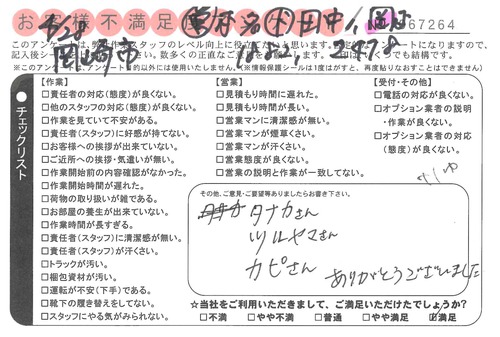 お客様不満足
No. 67264
4/28
岡崎市
このアンケートは、弊社作業スタッフのレベル向上に役立てたいと思います。
チェックリスト
【作業】
□責任者の対応(態度)が良くない。
□他のスタッフの対応(態度)が良くない。
□作業を見ていて不安がある。
□責任者(スタッフ)に好感が持てない。
□お客様への挨拶が出来ていない。
□ご近所への挨拶・気遣いが無い。
□作業開始前の内容確認がなかった。
□作業開始時間が遅れた。
□荷物の取り扱いが雑である。
□お部屋の養生が出来ていない。
□作業時間が長すぎる。
□責任者(スタッフ)に清潔感が無い。
□責任者(スタッフ)が汗くさい。
□トラックが汚い。
□梱包資材が汚い。
□運転が不安(下手)である。
□靴下の履き替えをしてない。
□スタッフにやる気がみられない。
【営業】
□見積もり時間に遅れた。
□見積もり時間が長い。
□営業マンに清潔感が無い。
□営業マンが煙草くさい。
□営業マンが汗くさい。
□営業態度が良くない。
□営業の説明と作業が一致してない。
【受付・その他】
□電話の対応が良くない。
□オプション業者の説明
・作業が良くない。
□オプション業者の対応
(態度)が良くない。
その他、ご意見・ご要望等ありましたらお書き下さい。
タナカさん
ツルヤマさん
カピさん
ありがとうございました
☆当社をご利用いただきまして、ご満足いただけたでしょうか?
□不満 □やや不満 □普通 □やや満足 ☑満足